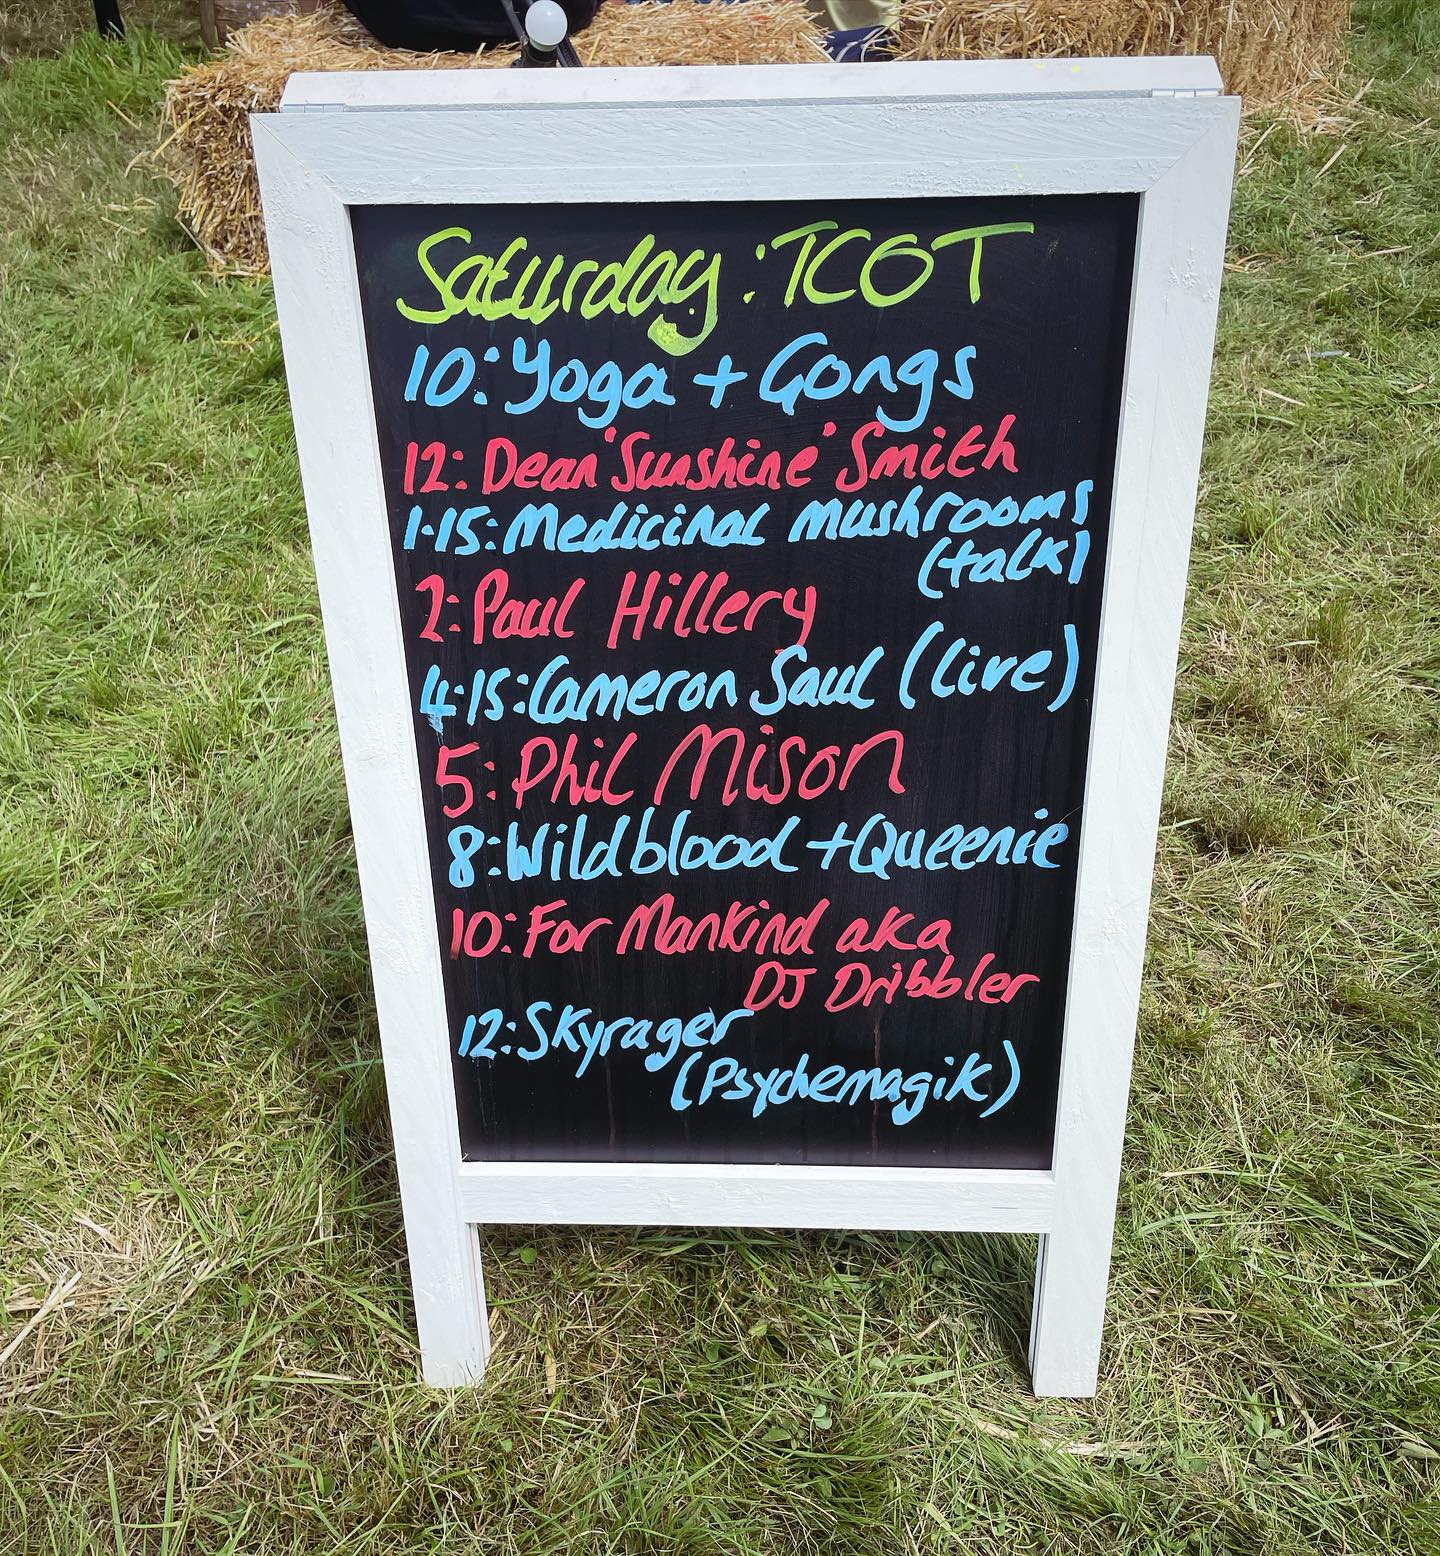 Saturday: TCOT
10: Yoga + Gongs
12: Dean 'Sunshine' Smith
1·15: Medicinal mushrooms
(talk)
2: Paul Hillery
4·15: Cameron Saul (live)
5: Phil Mison
8: Wildblood + Queenie
10: For Mankind aka
DJ Dribbler
12: Skyrager
(Psychemagik)